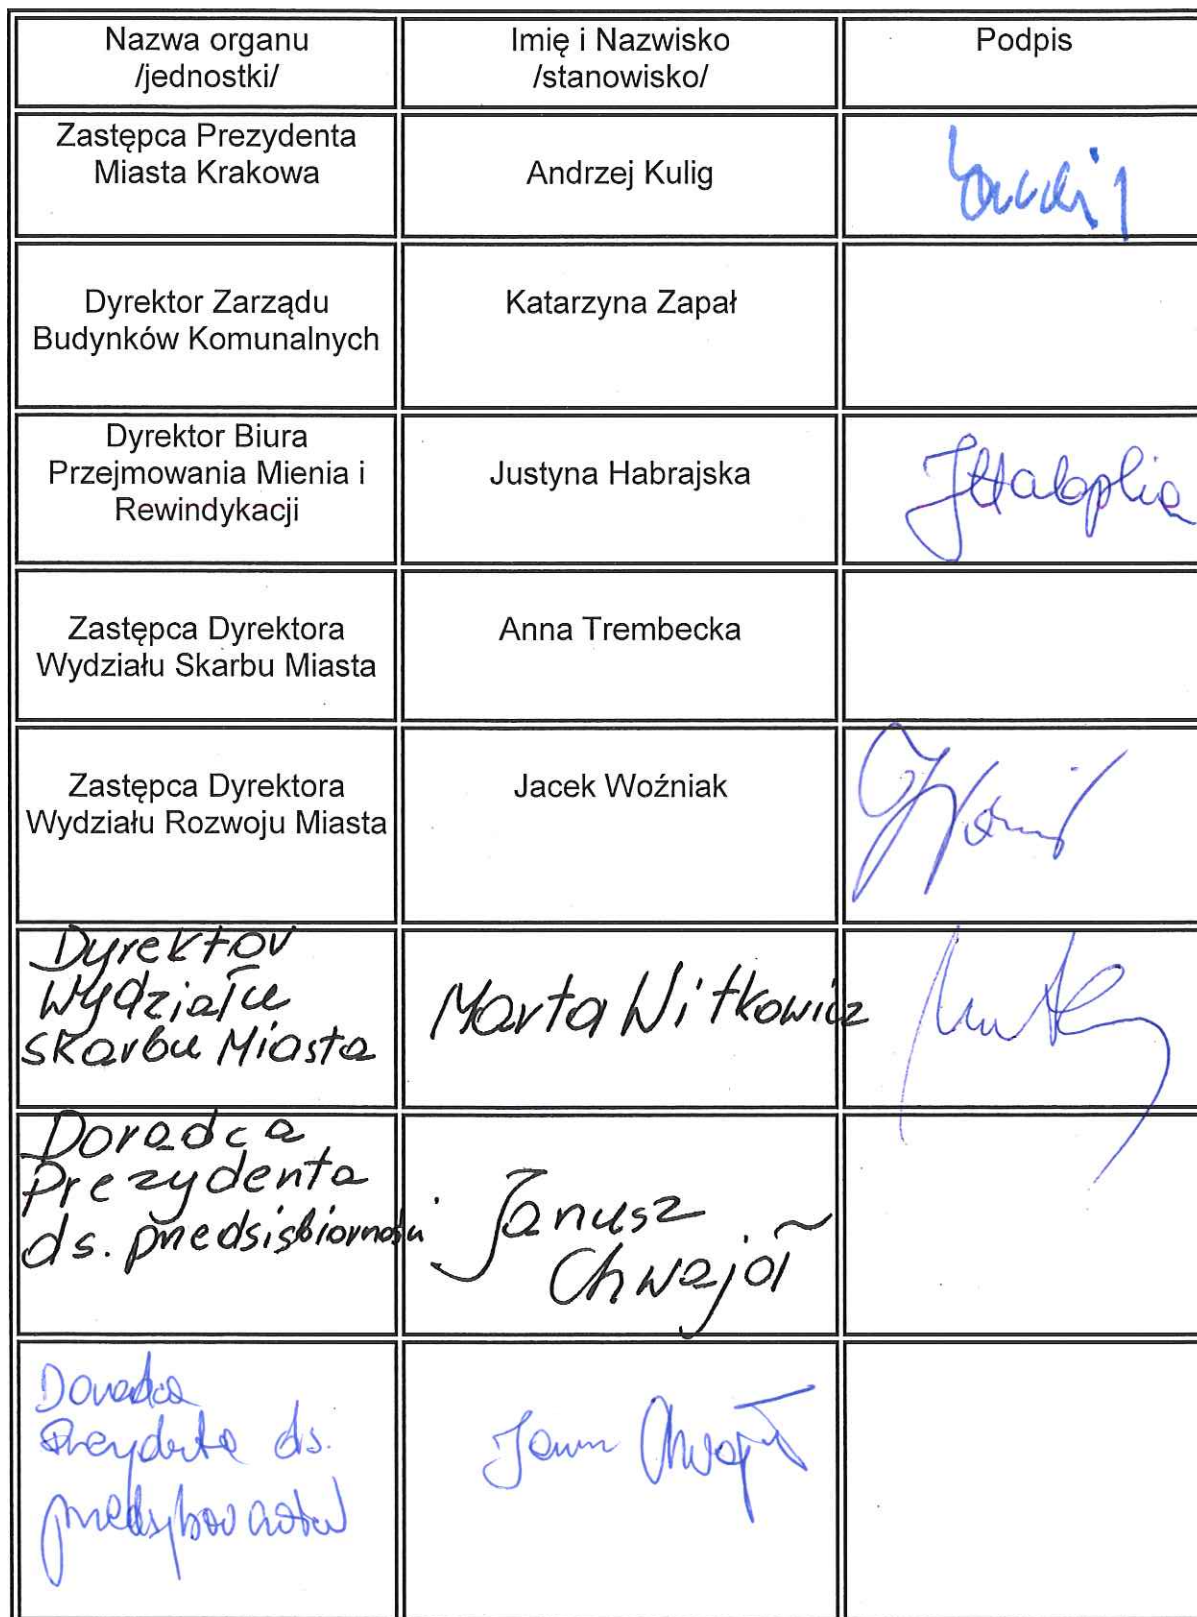 Nazwa organu
/jednostki/
Imię i Nazwisko
/stanowisko/
Podpis
Zastępca Prezydenta
Miasta Krakowa
Andrzej Kulig
Dyrektor Zarządu
Budynków Komunalnych
Katarzyna Zapał
Dyrektor Biura
Przejmowania Mienia i
Rewindykacji
Justyna Habrajska
Zastępca Dyrektora
Wydziału Skarbu Miasta
Anna Trembecka
Zastępca Dyrektora
Wydziału Rozwoju Miasta
Jacek Woźniak
Dyrektor
Wydziału
Skarbu Miasta
Marta Witkowicz
Doradca
Prezydenta
ds. przedsiębiorczości
Janusz
Chwajoł
Doradca
Prezydenta ds.
przedsiębiorczości
Janusz Chwajoł